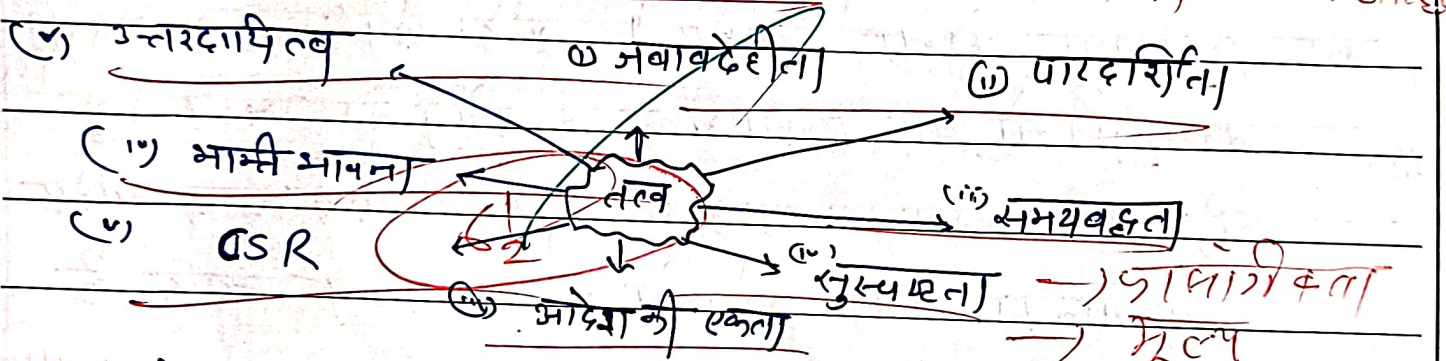 (v) उत्तरदायित्व
(i) जबाबदेहीता
(ii) पारदर्शिता
(iv) भामी भावना
तत्व
(iii) समयबद्धता
(v) CSR
6 1/2
(iv) सुस्पष्टता
→ प्रासांगीकता
आदेश की एकता
→ मूल्य